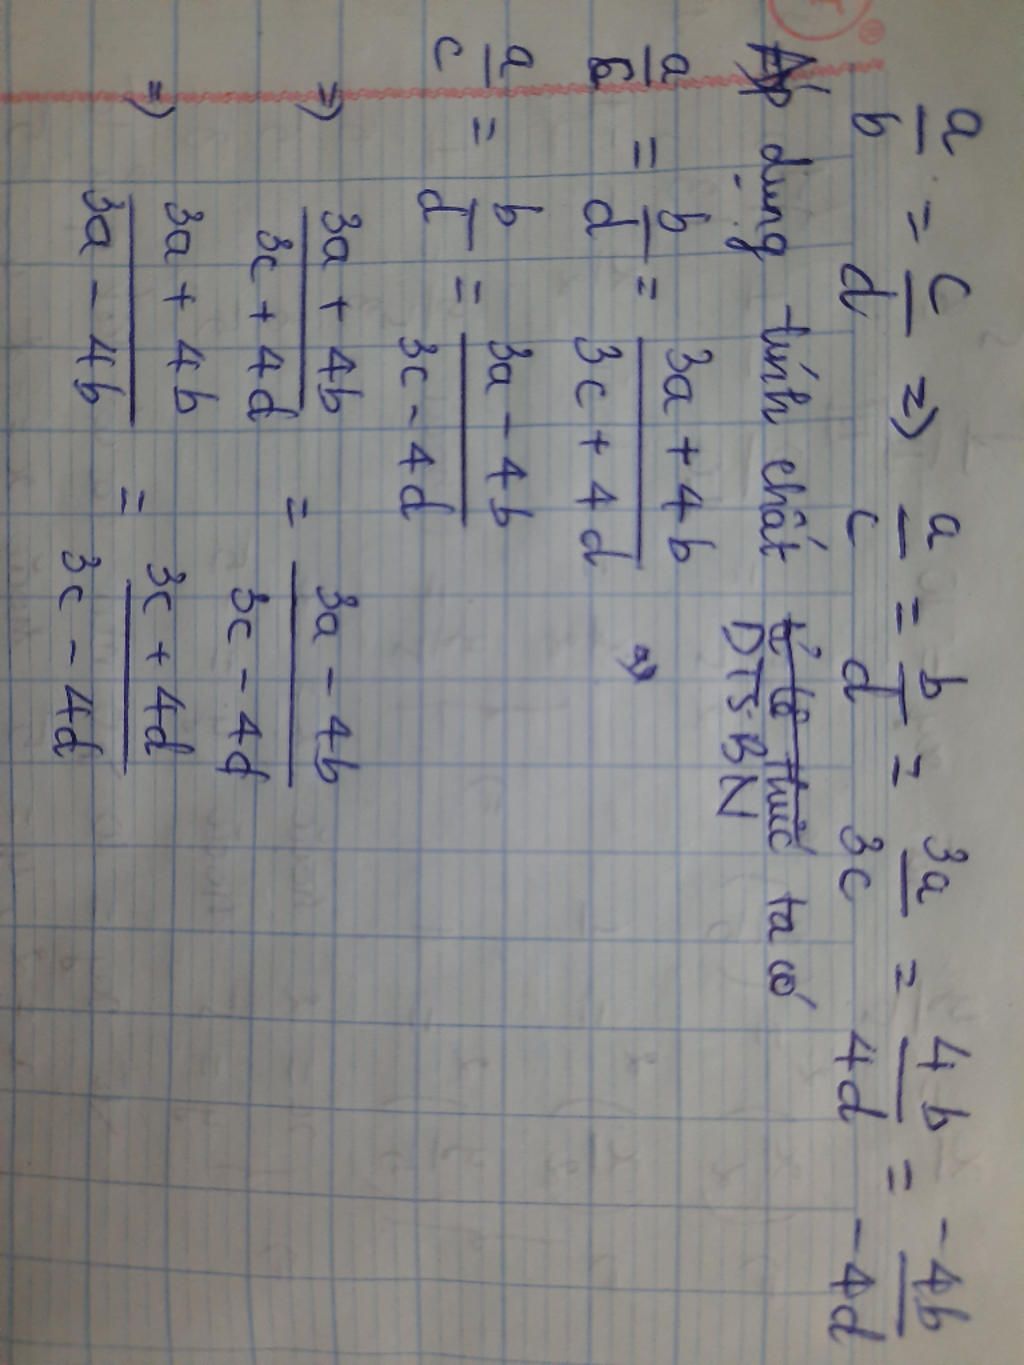 a/b = c/d => a/c = b/d = 3a/3c = 4b/4d = -4b/-4d
Áp dụng tính chất tỉ lệ thức ta có
DTSBN
a/c = b/d = 3a + 4b/3c + 4d =>
a/c = b/d = 3a - 4b/3c - 4d
=> 3a + 4b/3c + 4d = 3a - 4b/3c - 4d
=> 3a + 4b/3a - 4b = 3c + 4d/3c - 4d